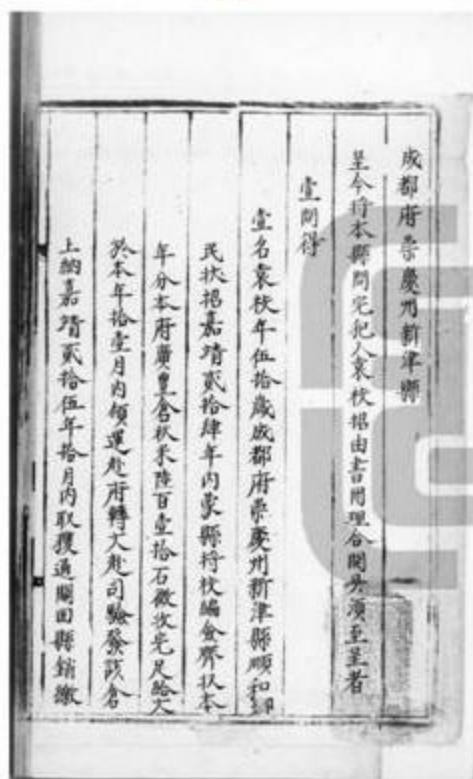 成都府崇慶州新津縣
呈今将本縣問完犯人袁枚招由書冊理合開具湏至呈者
壹問得
壹名袁枚年伍拾歳成都府崇慶州新津縣順和鄉
民狀招嘉靖貳拾肆年內蒙縣将枚編僉齊扒本
年分本府廣豊倉秋米陸百壹拾石徵收完足給文
於本年拾壹月內領運赴府轉文赴司驗發該倉
上納嘉靖貳拾伍年拾月內取獲通關回縣銷繳